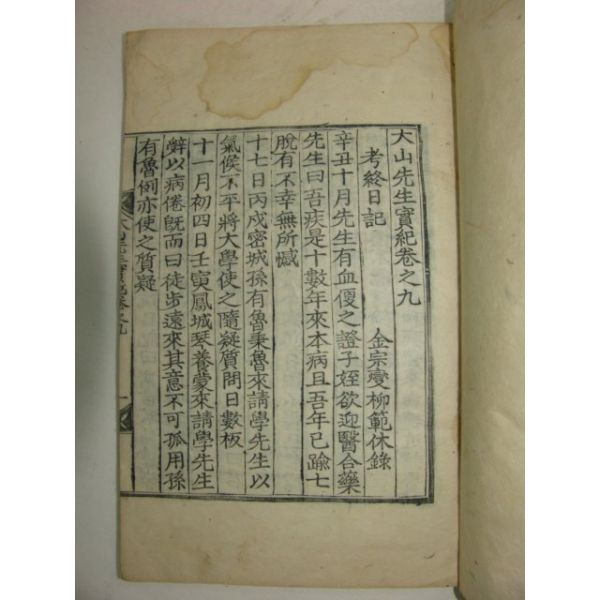 大山先生實紀卷之九
考終日記 金宗燮柳範休錄
辛丑十月先生有血便之證子姪欲迎醫合藥
先生曰吾疾是十數年來本病且吾年已踰七
脫有不幸無所憾
十七日丙戌密城孫有魯秉魯來請學先生以
氣候不平將大學使之隨疑質問日數板
十一月初四日壬寅鳳城琴養蒙來請學先生
辭以病倦旣而曰徒步遠來其意不可孤用孫
有魯例亦使之質疑